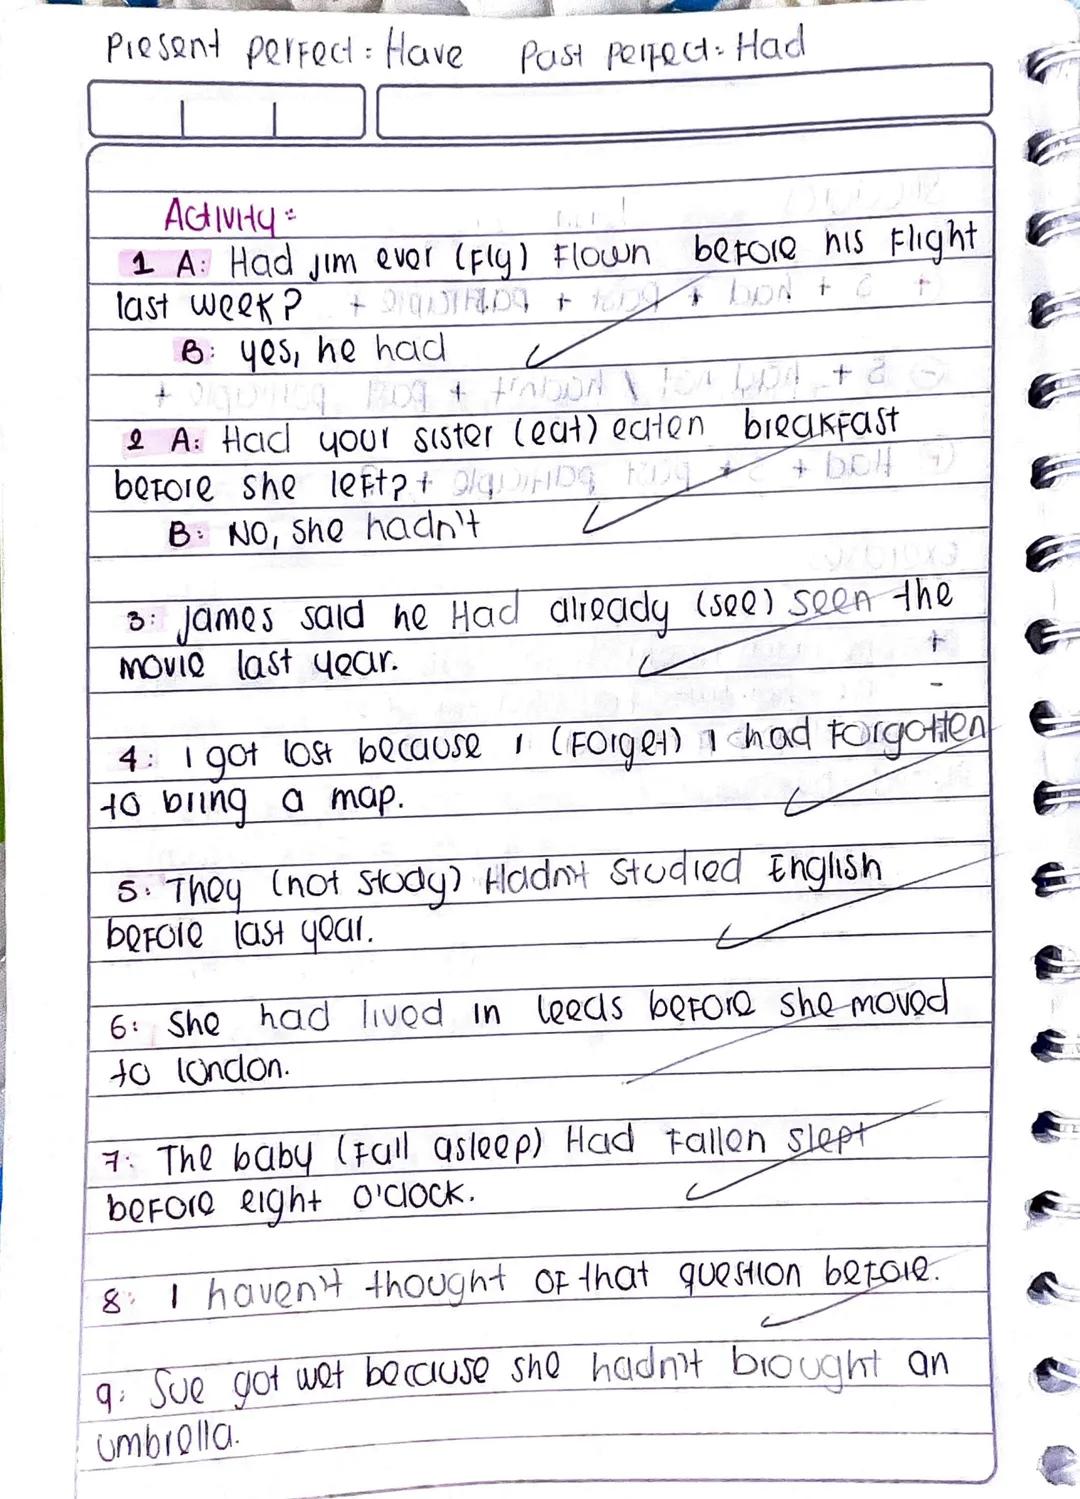 Present perfect: Have Past perfect: Had
Activity:
1 A: Had Jim ever (fly) flown before his flight
last week?
B: yes, he had
2 A: Had your sister (eat) eaten breakfast
before she left?
B: No, she hadn't
3: James said he Had already (see) seen the
movie last year.
4: I got lost because I (Forget) I had forgotten
to bring a map.
5: They (not study) Hadn't studied English
before last year.
6: She had lived in Leeds before she moved
to London.
7: The baby (Fall asleep) Had Fallen slept
before eight o'clock.
8: I haven't thought of that question before.
9: Sue got wet because she hadn't brought an
umbrella.